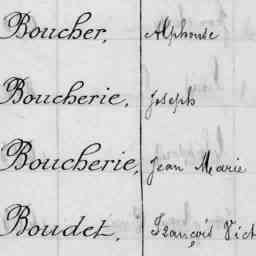 Boucher, Alphonse
Boucherie, Joseph
Boucherie, Jean Marie
Boudet, François Vict